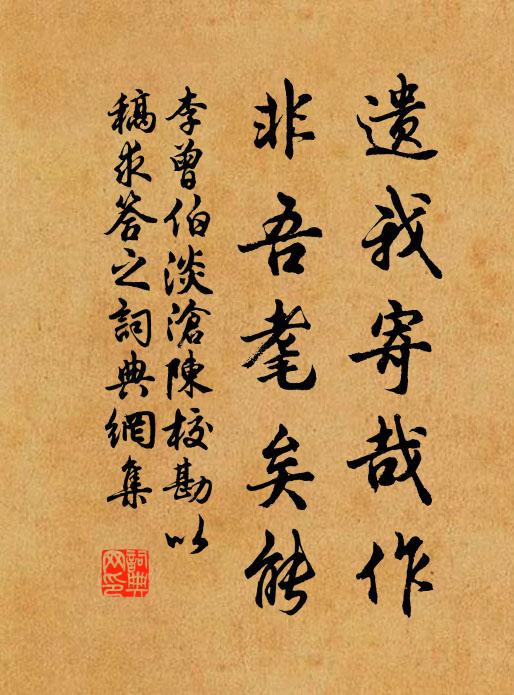 遗我寄哉作
非吾耄矣能
李曾伯淡滄陳校勘以
稿求答之詞典網集
詞典
网印